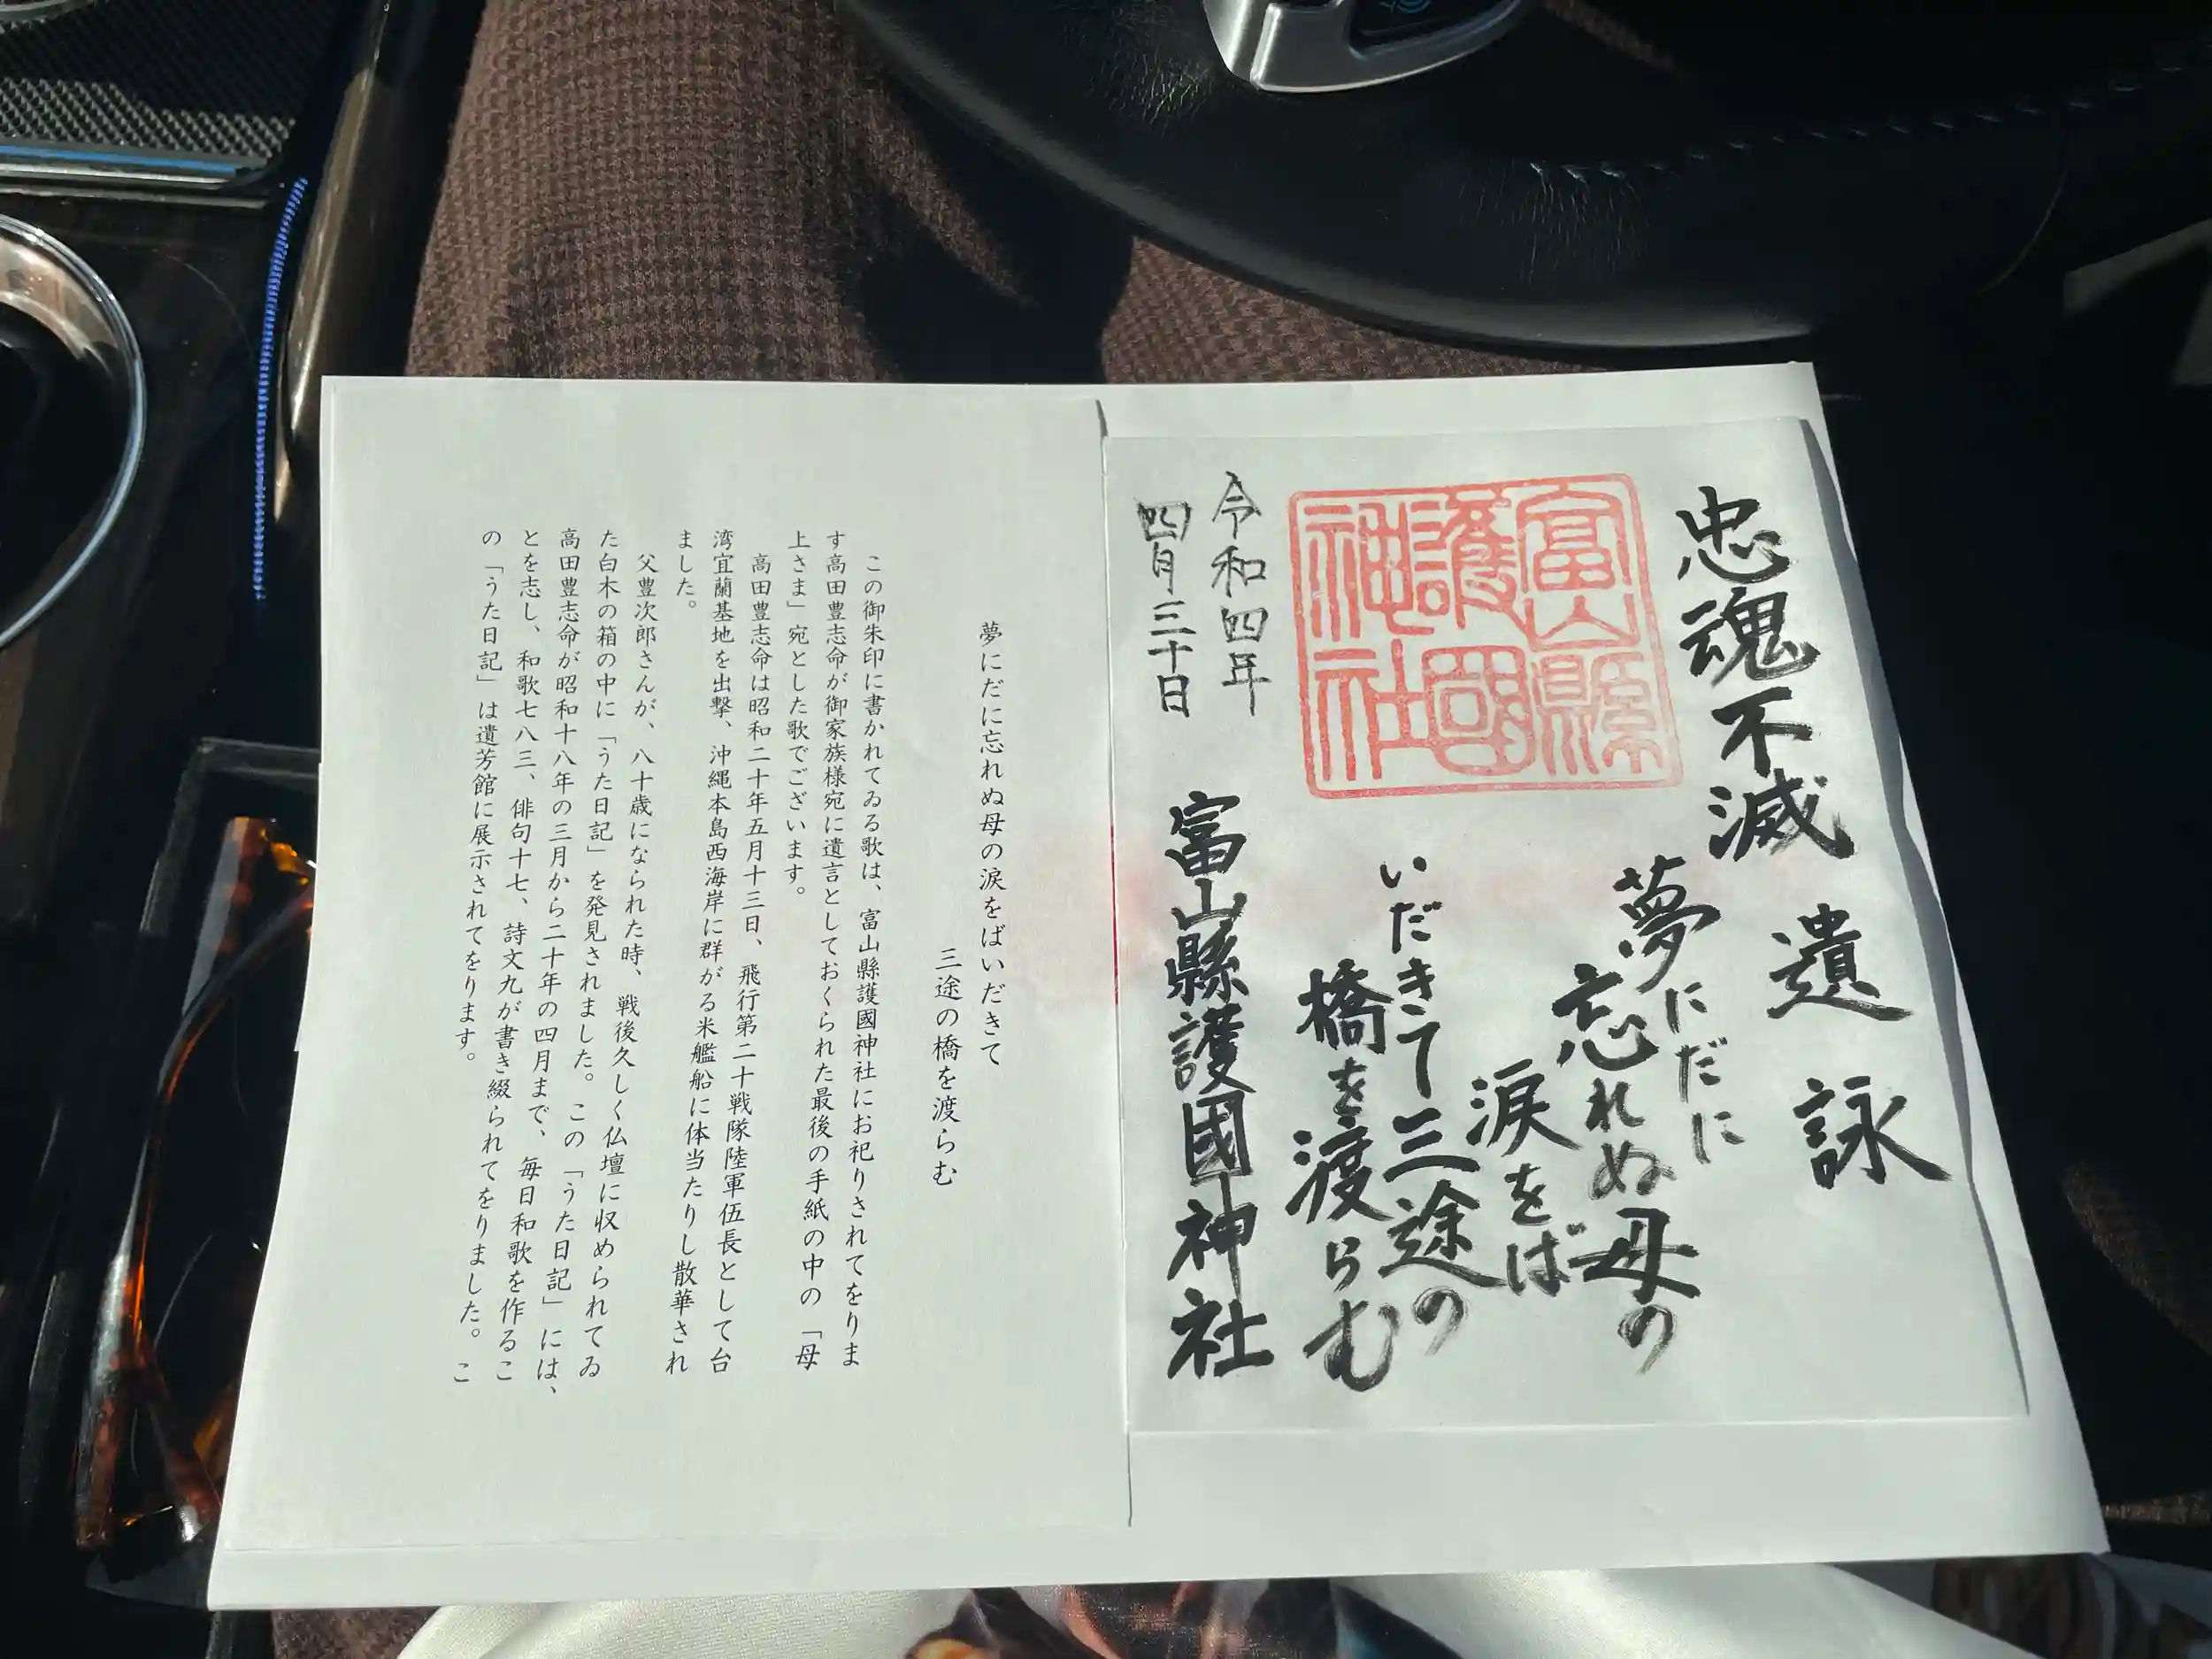 忠魂不滅
遺詠
夢にだに
忘れぬ母の
涙をば
いだきて三途の
橋を渡らむ
富山縣
護國
神社
令和四年
四月三十日
富山縣護國神社
夢にだに忘れぬ母の涙をばいだきて
三途の橋を渡らむ
この御朱印に書かれてゐる歌は、富山縣護國神社にお祀りされてをりま
す高田豊志命が御家族様宛に遺言としておくられた最後の手紙の中の「母
上さま」宛とした歌でございます。
高田豊志命は昭和二十年五月十三日、飛行第二十戦隊陸軍伍長として台
湾宜蘭基地を出撃、沖縄本島西海岸に群がる米艦船に体当たりし散華され
ました。
父豊次郎さんが、八十歳になられた時、戦後久しく仏壇に収められてゐ
た白木の箱の中に「うた日記」を発見されました。この「うた日記」には、
高田豊志命が昭和十八年の三月から二十年の四月まで、毎日和歌を作るこ
とを志し、和歌七八三、俳句十七、詩文九が書き綴られてをりました。こ
の「うた日記」は遺芳館に展示されてをります。